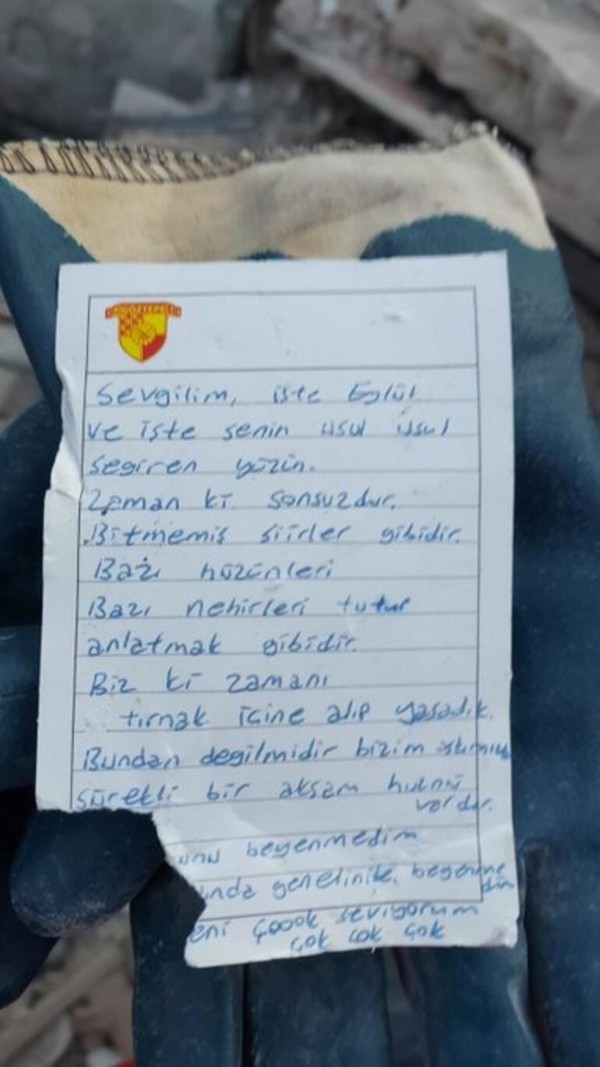 GÖZTEPE
Sevgilim, işte Eylül
ve işte senin usul usul
segiren yüzün.
Zaman ki sonsuzdur.
Bitmemiş şiirler gibidir.
Bazı hüzünleri
Bazı nehirleri tutup
anlatmak gibidir.
Biz ki zamanı
tırnak içine alıp yaşadık.
Bundan değilmidir bizim
sürekli bir akşam hüznü
vardır.
unu beyenmedim
unda genelinide beyenme
dim
eni çoook seviyorum
çok çok çok